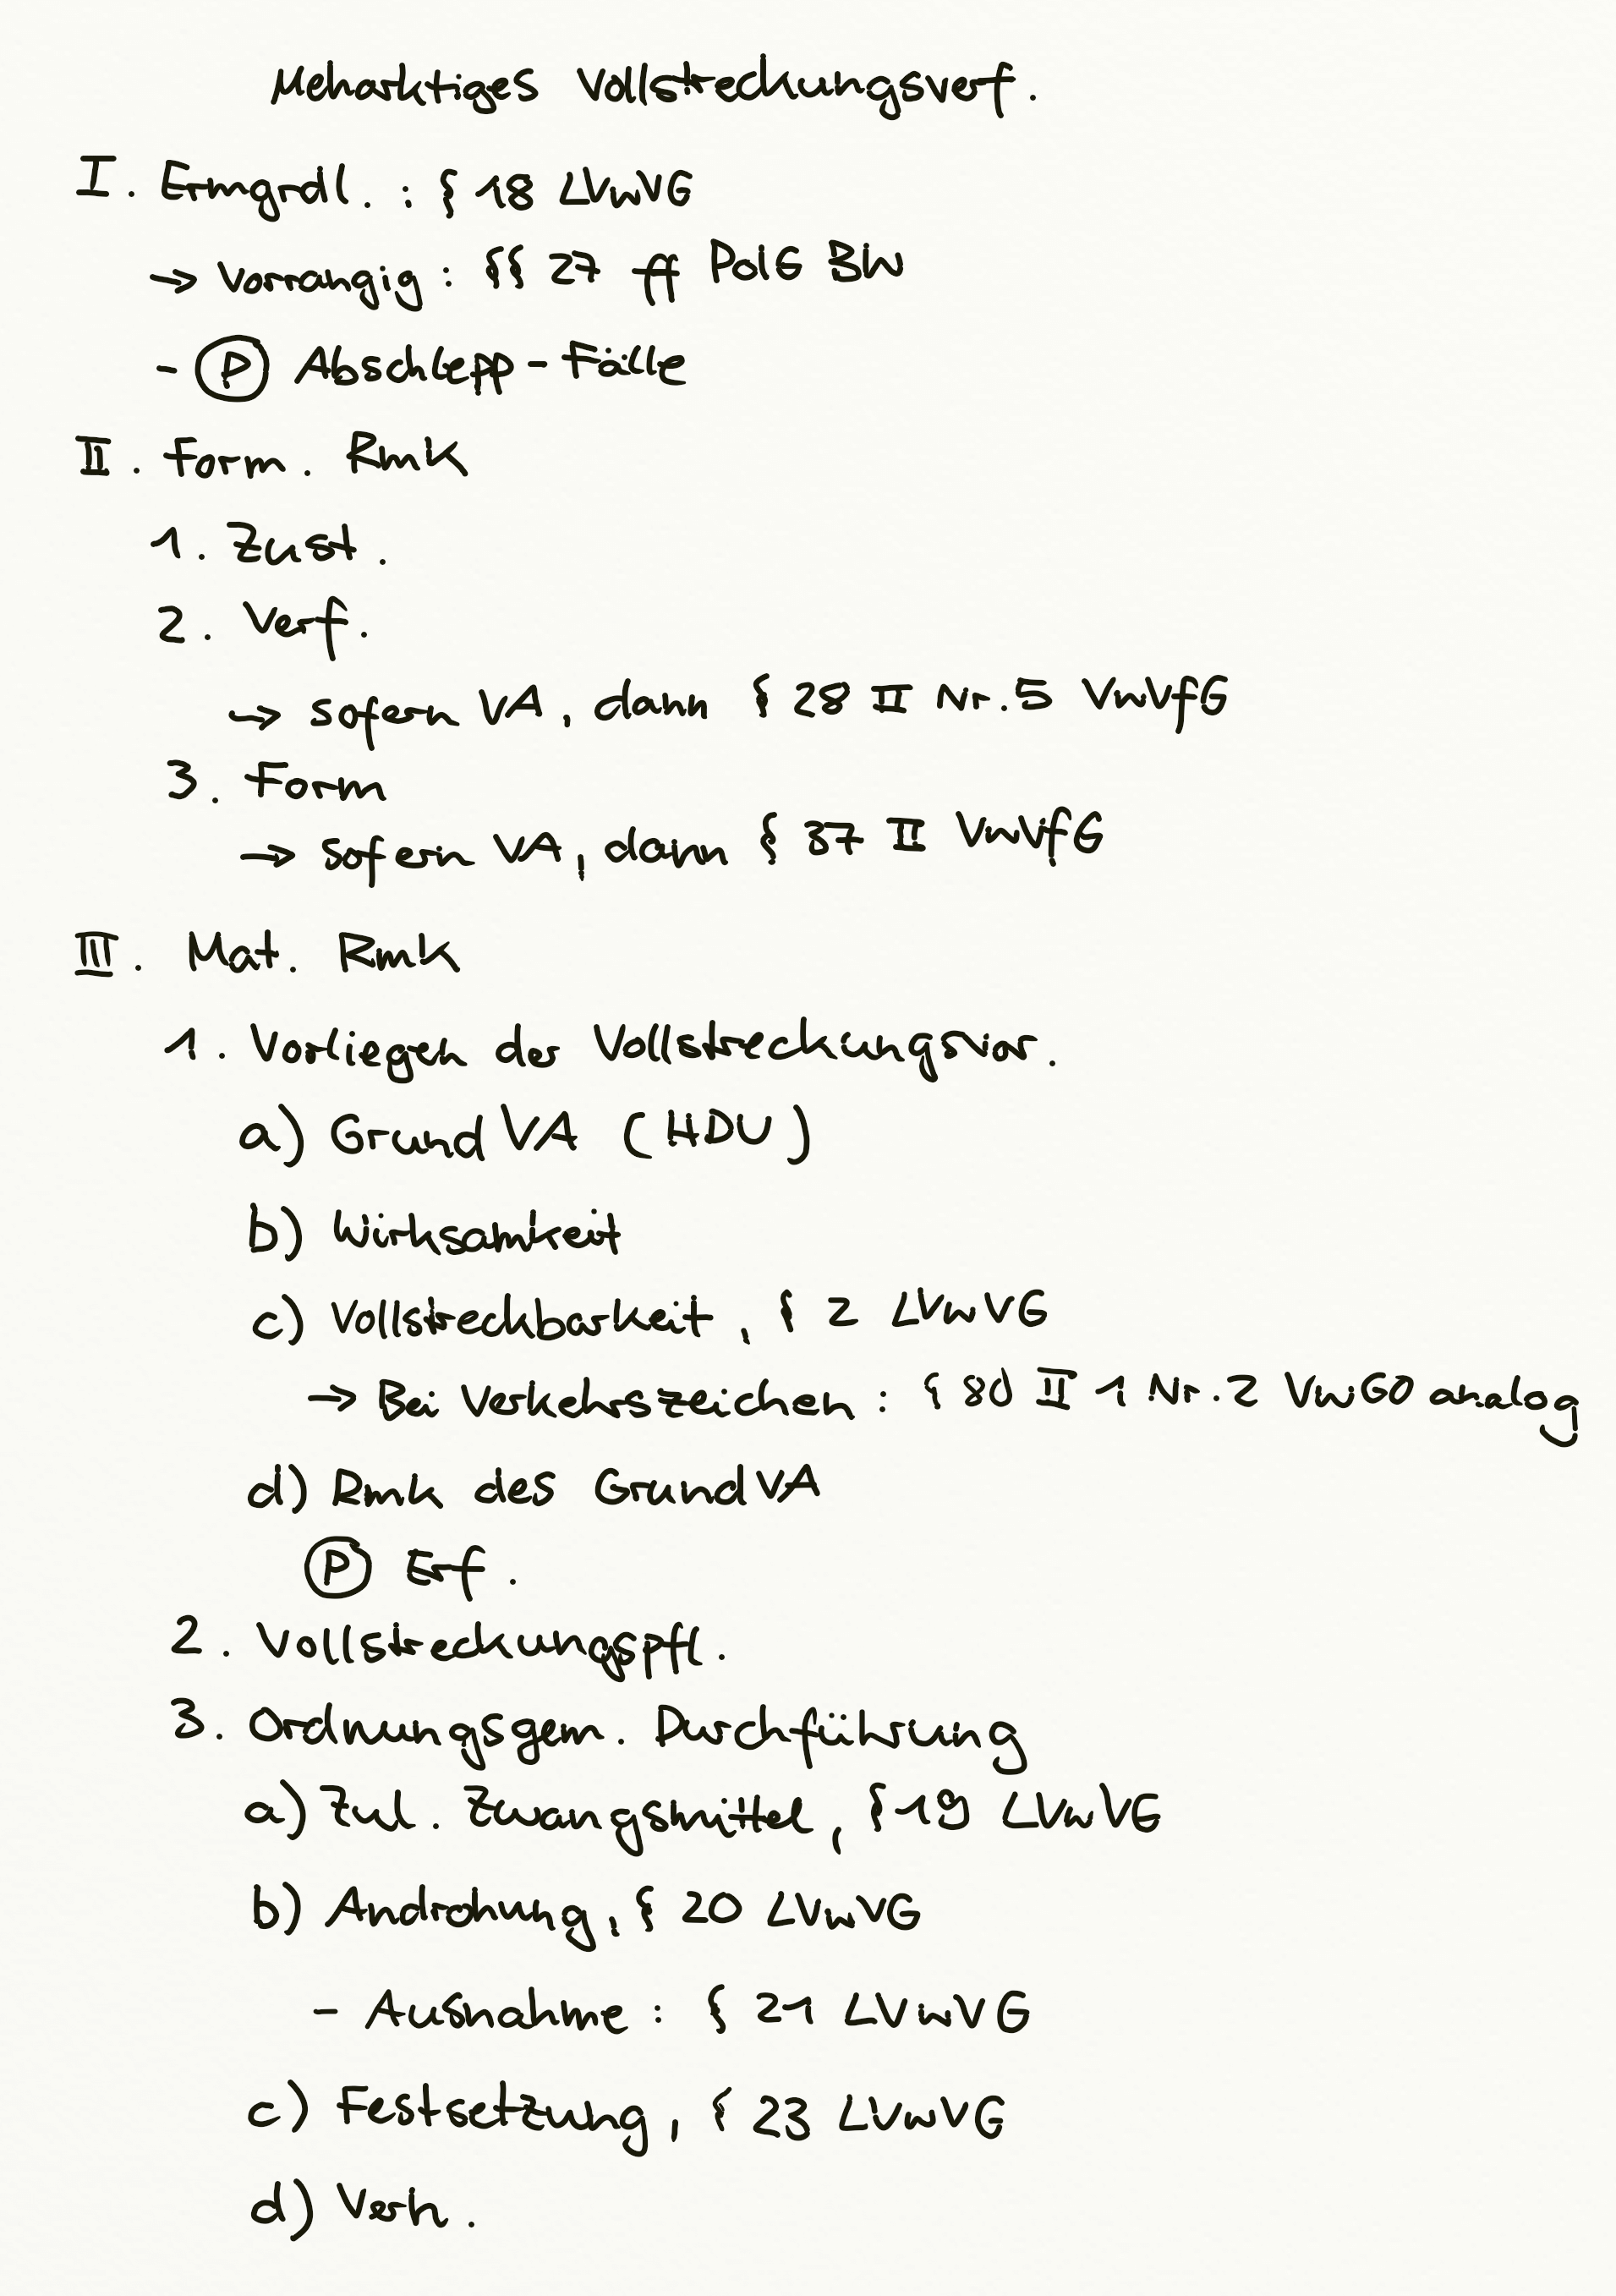 Meharktiges Vollstreckungsverf.
I. Ermgrdl. : § 18 LVwVG
→ Vorrangig : §§ 27 ff PolG BW
- Ⓟ Abschlepp - Fälle
II. Form. RmK
1. Zust.
2. Verf.
→ sofern VA, dann § 28 II Nr. 5 VwVfG
3. Form
→ sofern VA, dann § 37 II VwVfG
III. Mat. RmK
1. Vorliegen der Vollstreckungsvor.
a) Grund VA (HDU)
b) Wirksamkeit
c) Vollstreckbarkeit, § 2 LVwVG
→ Bei Verkehrszeichen : § 80 II 1 Nr. 2 VwGO analog
d) Rmk des Grund VA
Ⓟ Erf.
2. Vollstreckungspfl.
3. Ordnungsgem. Durchführung
a) Zul. Zwangsmittel, § 19 LVwVG
b) Androhung, § 20 LVwVG
- Ausnahme : § 21 LVwVG
c) Festsetzung, § 23 LVwVG
d) Verh.